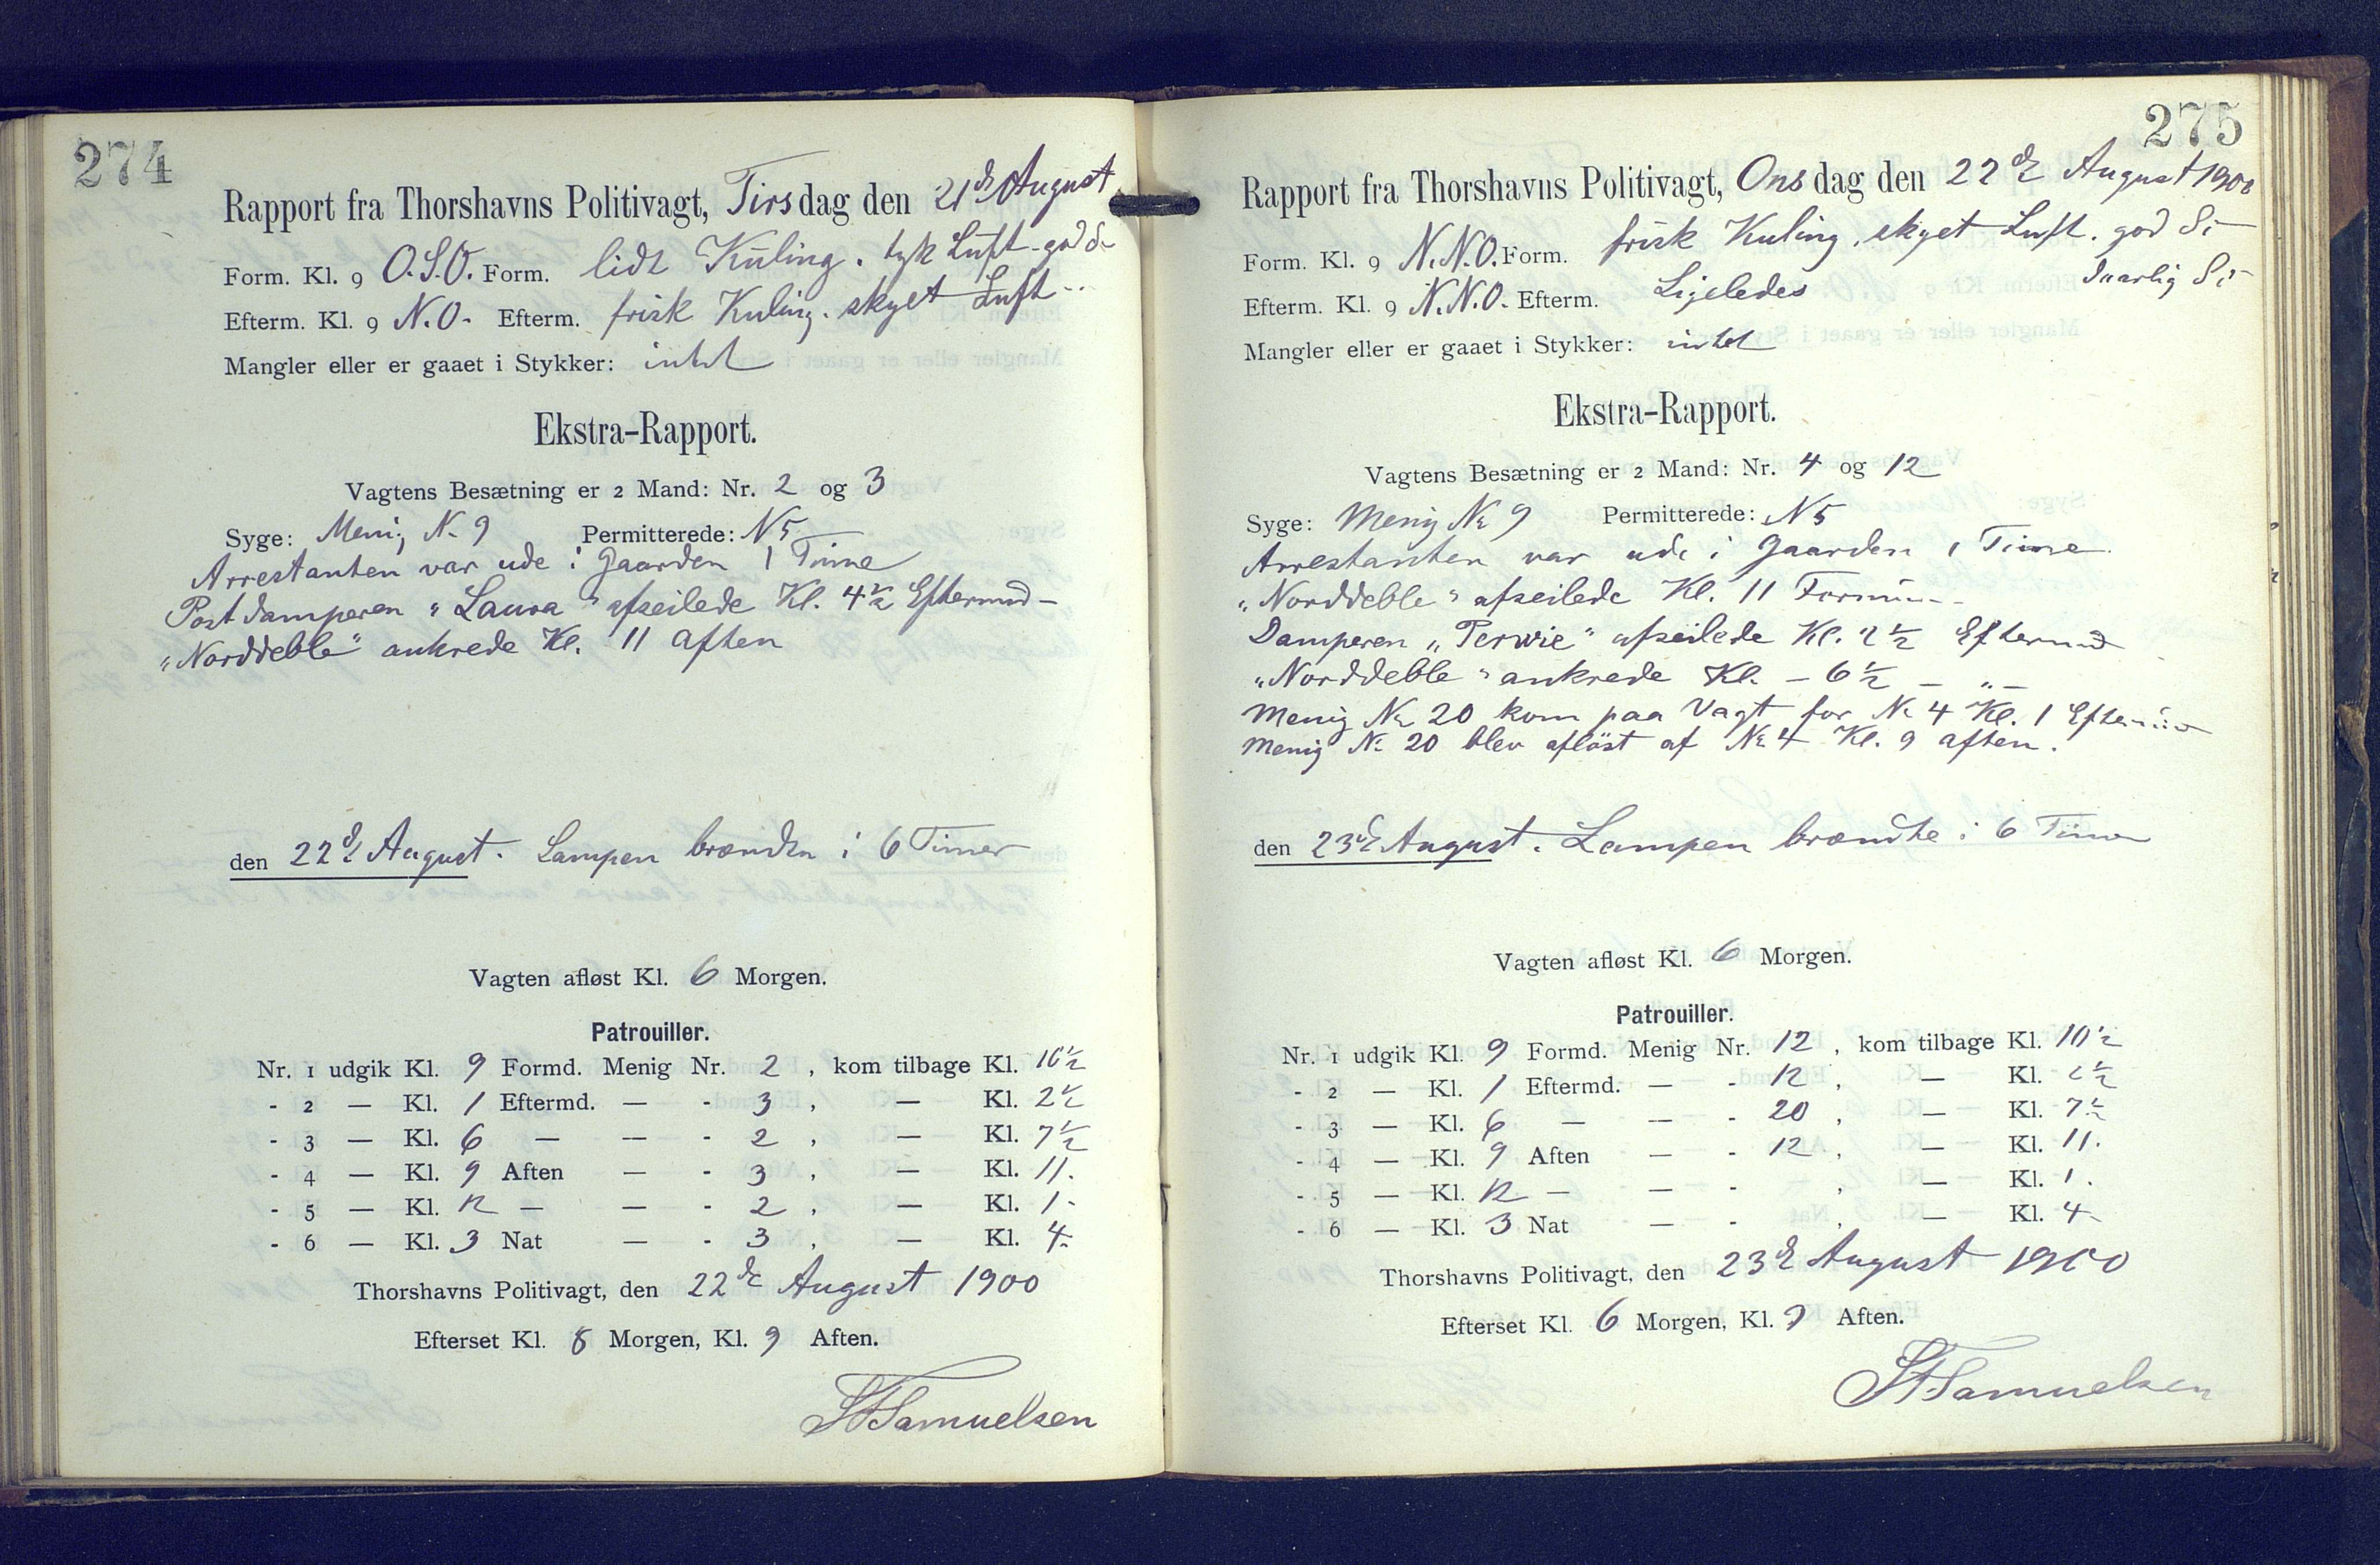 274
Rapport fra Thorshavns Politivagt, Tirsdag den 21de August
Form. Kl. 9 O.S.O. Form. lidt Kuling. tyk Luft. god Si
Efterm. Kl. 9 N.O. Efterm. frisk Kuling. skyet Luft
Mangler eller er gaaet i Stykker: intet
Ekstra-Rapport.
Vagtens Besætning er 2 Mand: Nr. 2 og 3
Syge: Menig N. 9 Permitterede: N 5
Arrestanten var ude i Gaarden 1 Time
Postdamperen "Laura" afseilede Kl. 4½ Eftermd
"Norddeble" ankrede Kl. 11 aften
den 22de August. Lampen brændte i 6 Timer
Vagten afløst Kl. 6 Morgen.
Patrouiller.
Nr. 1 udgik Kl. 9 Formd. Menig Nr. 2, kom tilbage Kl. 10½
- 2 — Kl. 1 Eftermd. — - 3, — Kl. 2½
- 3 — Kl. 6 — — - 2, — Kl. 7½
- 4 — Kl. 9 Aften — - 3, — Kl. 11.
- 5 — Kl. 12 — — - 2, — Kl. 1.
- 6 — Kl. 3 Nat — - 3, — Kl. 4.
Thorshavns Politivagt, den 22de August 1900
Efterset Kl. 8 Morgen, Kl. 9 Aften.
Samuelsen
275
Rapport fra Thorshavns Politivagt, Onsdag den 22de August 1900
Form. Kl. 9 N.N.O. Form. frisk Kuling. skyet Luft. god Si
Efterm. Kl. 9 N.N.O. Efterm. Ligeledes daarlig Si
Mangler eller er gaaet i Stykker: intet
Ekstra-Rapport.
Vagtens Besætning er 2 Mand: Nr. 4 og 12
Syge: Menig Nr 9 Permitterede: N 5
Arrestanten var ude i Gaarden 1 Time.
"Norddeble" afseilede Kl. 11 Formd
Damperen "Perwie" afseilede Kl. 2½ Eftermd
"Norddeble" ankrede Kl. - 6½ - " -
Menig Nr 20 kom paa Vagt for Nr 4 Kl. 1 Eftermd
Menig Nr 20 blev afløst af Nr 4 Kl. 9 aften.
den 23de August. Lampen brændte i 6 Timer
Vagten afløst Kl. 6 Morgen.
Patrouiller.
Nr. 1 udgik Kl. 9 Formd. Menig Nr. 12, kom tilbage Kl. 10½
- 2 — Kl. 1 Eftermd. — - 12, — Kl. 2½
- 3 — Kl. 6 — — - 20, — Kl. 7½
- 4 — Kl. 9 Aften — - 12, — Kl. 11.
- 5 — Kl. 12 — — - , — Kl. 1.
- 6 — Kl. 3 Nat — - , — Kl. 4
Thorshavns Politivagt, den 23de August 1900
Efterset Kl. 6 Morgen, Kl. 9 Aften.
Samuelsen